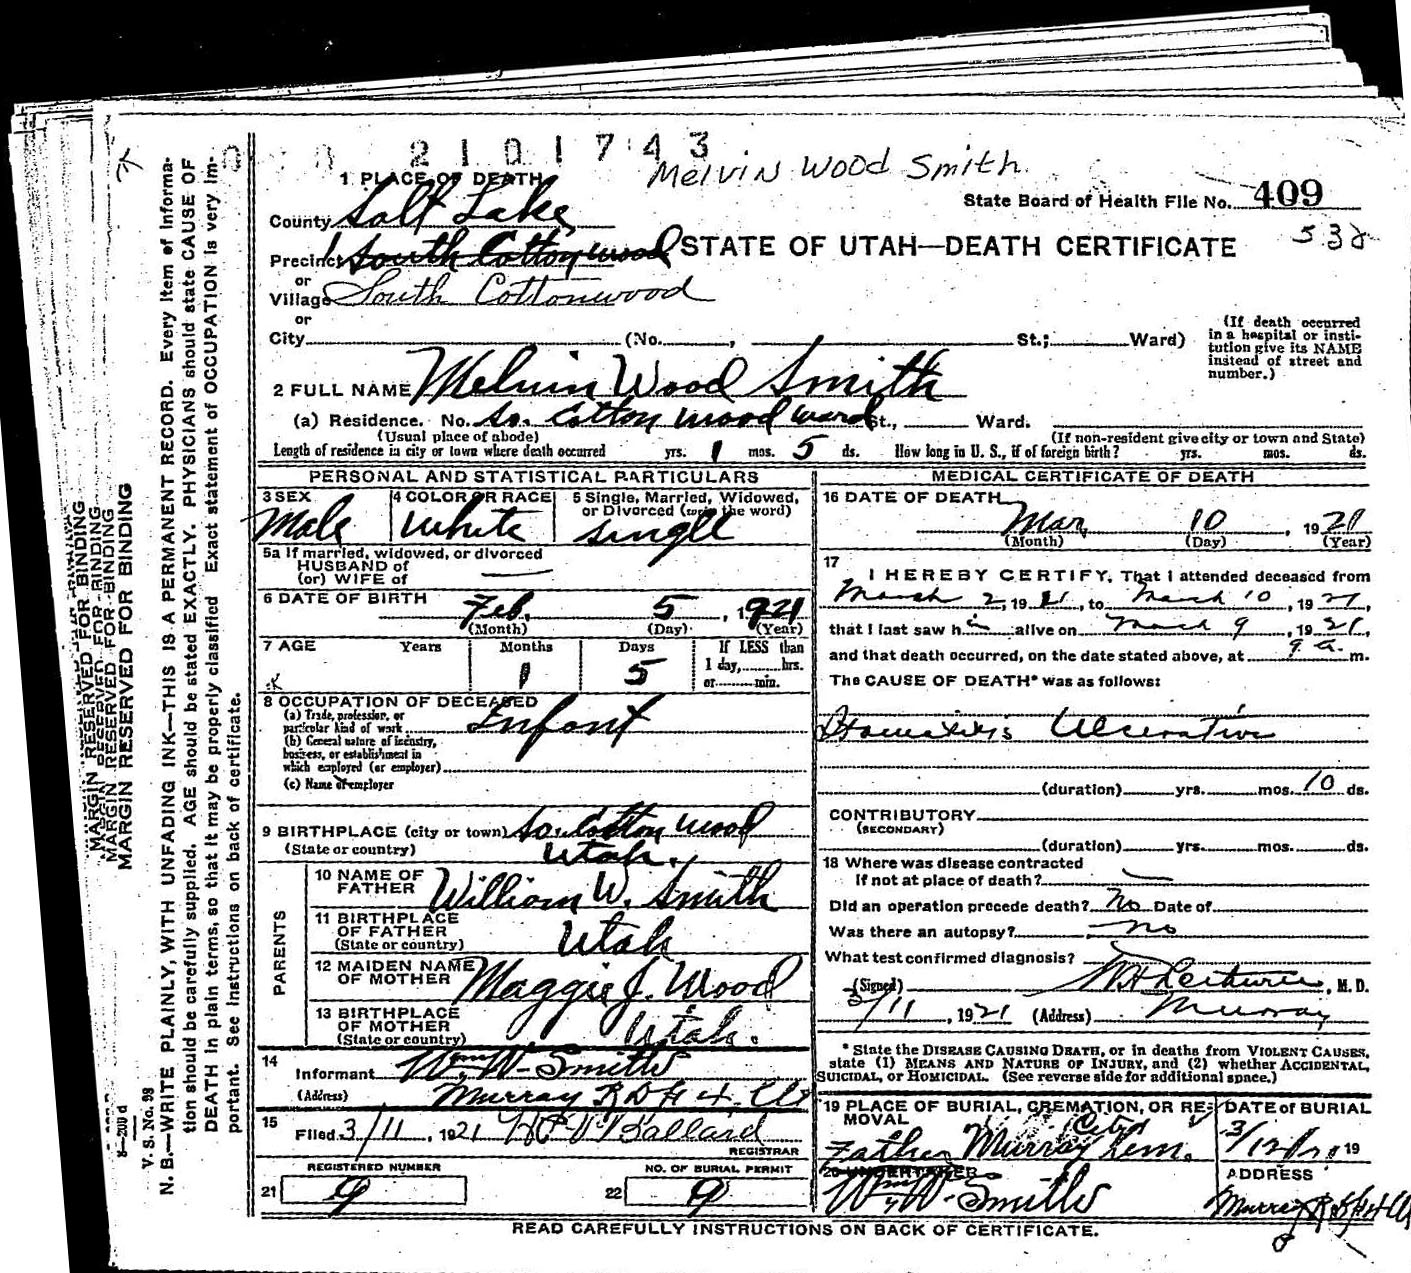 2101743
Melvin Wood Smith
1 PLACE OF DEATH
State Board of Health File No. 409
County Salt Lake
538
Precinct South Cottonwood
STATE OF UTAH—DEATH CERTIFICATE
or
Village South Cottonwood
or
City (No. , St.; Ward)
(If death occurred in a hospital or institution give its NAME instead of street and number.)
2 FULL NAME Melvin Wood Smith
(a) Residence. No. So. Cottonwood Ward St., Ward.
(Usual place of abode) (If non-resident give city or town and State)
Length of residence in city or town where death occurred yrs. 1 mos. 5 ds. How long in U. S., if of foreign birth? yrs. mos. ds.
PERSONAL AND STATISTICAL PARTICULARS
3 SEX Male
4 COLOR OR RACE White
5 Single, Married, Widowed, or Divorced (write the word) Single
5a If married, widowed, or divorced
HUSBAND of
(or) WIFE of
6 DATE OF BIRTH Feb. 5, 1921
(Month) (Day) (Year)
7 AGE Years Months Days If LESS than
1 5 1 day, hrs.
or min.
8 OCCUPATION OF DECEASED
(a) Trade, profession, or particular kind of work Infant
(b) General nature of industry, business, or establishment in which employed (or employer)
(c) Name of employer
9 BIRTHPLACE (city or town) So. Cottonwood
(State or country) Utah.
PARENTS
10 NAME OF FATHER William W. Smith
11 BIRTHPLACE OF FATHER (State or country) Utah
12 MAIDEN NAME OF MOTHER Maggie J. Wood
13 BIRTHPLACE OF MOTHER (State or country) Utah.
14 Informant Wm W. Smith
(Address) Murray R D # 4, Ut
15 Filed 3/11, 1921 Ballard
REGISTRAR
REGISTERED NUMBER
21 9
NO. OF BURIAL PERMIT
22 9
MEDICAL CERTIFICATE OF DEATH
16 DATE OF DEATH
Mar 10, 1921
(Month) (Day) (Year)
17 I HEREBY CERTIFY, That I attended deceased from
March 2, 1921, to March 10, 1921,
that I last saw him alive on March 9, 1921,
and that death occurred, on the date stated above, at 9 a. m.
The CAUSE OF DEATH* was as follows:
Stomatitis Ulcerative
(duration) yrs. mos. 10 ds.
CONTRIBUTORY
(SECONDARY)
(duration) yrs. mos. ds.
18 Where was disease contracted
If not at place of death?
Did an operation precede death? No Date of
Was there an autopsy? no
What test confirmed diagnosis?
(Signed) , M. D.
3/11, 1921 (Address) Murray
* State the DISEASE CAUSING DEATH, or in deaths from VIOLENT CAUSES,
state (1) MEANS AND NATURE OF INJURY, and (2) whether ACCIDENTAL,
SUICIDAL, or HOMICIDAL. (See reverse side for additional space.)
19 PLACE OF BURIAL, CREMATION, OR REMOVAL
City
Father Murray Cem.
DATE of BURIAL
3/12/21 19
20 UNDERTAKER
Wm W. Smith
ADDRESS
Murray R D # 4 Ut
READ CAREFULLY INSTRUCTIONS ON BACK OF CERTIFICATE.
MARGIN RESERVED FOR BINDING
MARGIN RESERVED FOR BINDING
MARGIN RESERVED FOR BINDING
V. S. No. 98
N. B.—WRITE PLAINLY, WITH UNFADING INK—THIS IS A PERMANENT RECORD. Every item of informa-
tion should be carefully supplied. AGE should be stated EXACTLY. PHYSICIANS should state CAUSE OF
DEATH in plain terms, so that it may be properly classified. Exact statement of OCCUPATION is very im-
portant. See instructions on back of certificate.